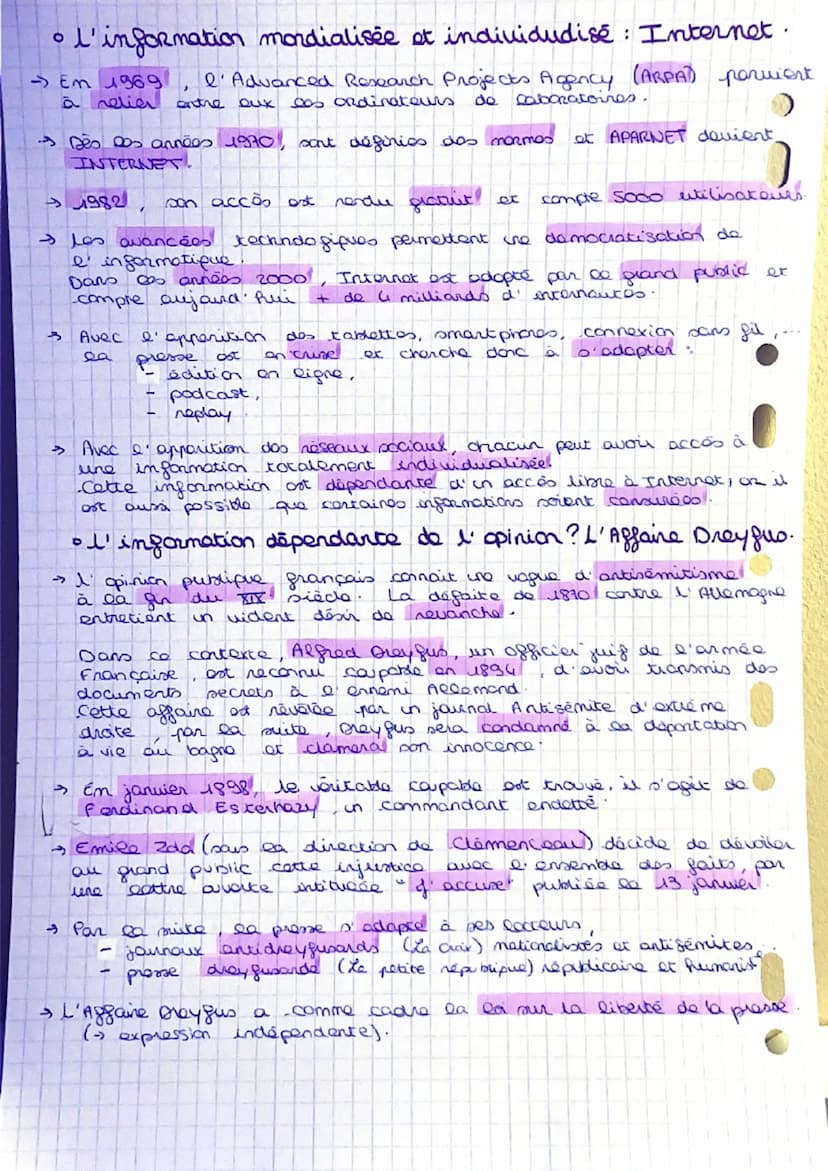 • L'information mondialisée et individualisé : Internet.
→ En 1969, l'Advanced Research Projects Agency (ARPA) parvient
à relier entre eux les ordinateurs de laboratoires.
→ Dès les années 1970, sont définies des normes et APARNET devient
INTERNET.
→ 1982, son accès est rendu gratuit et compte 5000 utilisateurs.
→ Les avancées technologiques permettent une démocratisation de
l'informatique.
Dans les années 2000, Internet est adopté par le grand public et
compte aujourd'hui + de 4 milliards d'internautes.
→ Avec l'apparition des tablettes, smartphones, connexion sans fil,...
la presse est en crise et cherche donc à s'adapter :
- édition en ligne,
- podcast,
- replay
→ Avec l'apparition des réseaux sociaux, chacun peut avoir accès à
une information totalement individualisée.
Cette information est dépendante d'un accès libre à Internet, or il
est aussi possible que certaines informations soient censurées.
• L'information dépendante de l'opinion ? L'Affaire Dreyfus.
→ L'opinion publique français connait une vague d'antisémitisme
à la fin du XIX siècle. La défaite de 1870 contre l'Allemagne
entretient un vident désir de revanche.
Dans ce contexte, Alfred Dreyfus, un officier juif de l'armée
Française, est reconnu coupable en 1894, d'avoir transmis des
documents secrets à l'ennemi Allemand.
Cette affaire est révélée par un journal Antisémite d'extrême
droite, par la suite, Dreyfus sera condamné à la déportation
à vie au bagne et clamera son innocence.
→ En janvier 1898, le véritable coupable est trouvé, il s'agit de
Ferdinand Esterhazy, un commandant endetté.
→ Emile Zola (sous la direction de Clémenceau) décide de dévoiler
au grand public cette injustice avec l'ensemble des faits, par
une lettre ouverte intitulée "J'accuse" publiée le 13 janvier.
→ Par la suite, la presse s'adapte à ses lecteurs,
- journaux antidreyfusards (La croix) nationalistes et antisémites,
- presse dreyfusarde (Le petite république) républicaine et humanist
→ L'Affaire Dreyfus a comme cadre la loi sur la liberté de la presse.
(→ expression indépendante).